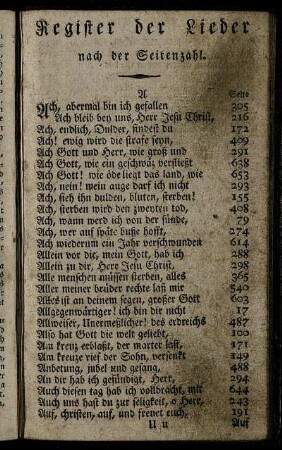 Register der Lieder
nach der Seitenzahl.
A Seite
Ach, abermal bin ich gefallen 305
Ach bleib bey uns, Herr Jesu Christ, 216
Ach, endlich, Dulder, findest du 172
Ach! ewig wird die strafe seyn, 409
Ach Gott und Herr, wie groß und 291
Ach Gott, wie ein geschwäz verfließt 638
Ach Gott! wie öde liegt das land, wie 653
Ach, nein! mein auge darf ich nicht 293
Ach, sieh ihn dulden, bluten, sterben! 155
Ach, sterben wird den zweyten tod, 408
Ach, wann werd ich von der sünde, 79
Ach, wer auf späte buße hofft, 274
Ach wiederum ein Jahr verschwunden 614
Allein vor dir, mein Gott, hab ich 288
Allein zu dir, Herr Jesu Christ, 298
Alle menschen müssen sterben, alles 365
Aller meiner brüder rechte laß mir 540
Alles ist an deinem segen, großer Gott 603
Allgegenwärtiger! ich bin dir nicht 17
Allweiser, Unermeßlicher! des erdreichs 487
Also hat Gott die welt geliebt, 100
Am kreuz erblaßt, der marter last, 171
Am kreuze rief der Sohn, versenkt 149
Anbetung, jubel und gesang, 488
An dir hab ich gesündigt, Herr, 294
Auch diesen tag hab ich vollbracht, mit 644
Auch uns hast du zur seligkeit, o Herr, 243
Auf, christen, auf, und freuet euch, 191
U u Auf